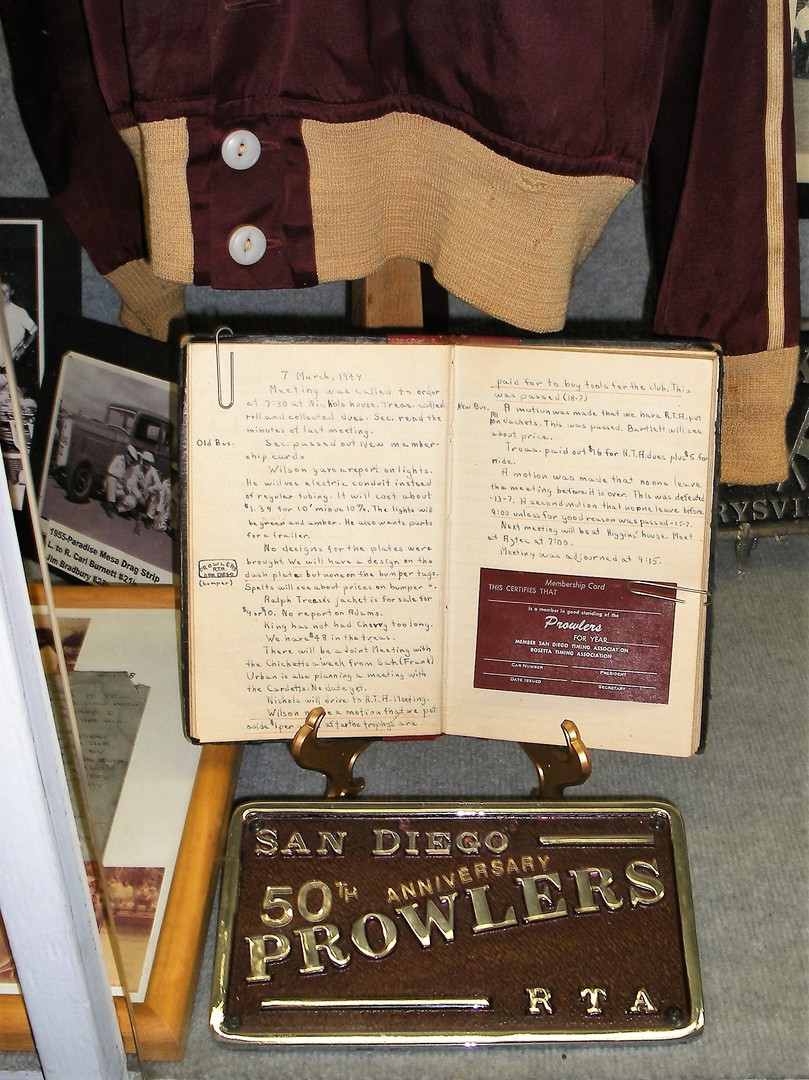 7 March, 1949
Meeting was called to order
at 7:30 at Nichols house. Treas. called
roll and collected dues. Sec. read the
minutes of last meeting.
Old Bus.
Sec. passed out New member-
ship cards
Wilson gave report on lights.
He will use electric conduit instead
of regular tubing. It will cost about
$1.39 for 10' minus 10%. The lights will
be green and amber. He also wants parts
for a trailer.
No designs for the plates were
brought. We will have a design on the
PROWLERS
RTA
SAN DIEGO
(bumper)
dash plates but none on the bumper tags.
Spelts will see about prices on bumper "
Ralph Treas's jacket is for sale for
$9 or $10. No report on Adams.
King has not had Chevvy too long.
We have $48 in the treas.
There will be a Joint Meeting with
the Chicketts a week from Sat. (Frank)
Urban is also planning a meeting with
the Cardetts. No date yet.
Nichols will drive to R.T.A. Meeting.
Wilson made a motion that we put
aside $1 per after the trophys are
paid for to buy tools for the club. This
was passed (18-7)
New Bus.
A motion was made that we have R.T.A. put
on jackets. This was passed. Bartlett will see
about price.
Treas. paid out $16 for R.T.A. dues plus $5 for
ride.
A motion was made that no one leave
the meeting before it is over. This was defeated
-13-7. A second motion that no one leave before
9:00 unless for good reason was passed -15-7.
Next meeting will be at Higgins' house. Meet
at Aztec at 7:00.
Meeting was adjourned at 9:15.
Membership Card
THIS CERTIFIES THAT
Is a member in good standing of the
Prowlers
FOR YEAR
MEMBER SAN DIEGO TIMING ASSOCIATION
ROSETTA TIMING ASSOCIATION
CAR NUMBER
PRESIDENT
DATE ISSUED
SECRETARY
1955-Paradise Mesa Drag Strip
L. to R. Carl Burnett #21
Jim Bradbury
RYSVI
SAN DIEGO
50TH ANNIVERSARY
PROWLERS
RTA